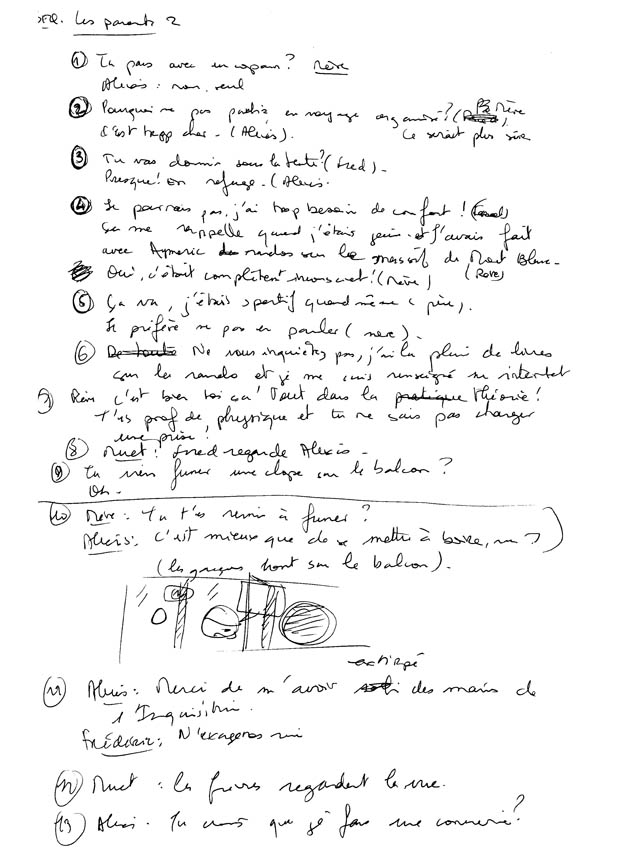 SEQ. Les parents 2
① Tu pars avec un copain? Mère
Alexis: non, seul
② Pourquoi ne pas partir en voyage organisé? (Mère)
C'est trop cher - (Alexis). Ce serait plus sûr
③ Tu vas dormir sous la tente? (Fred) -
Presque! En refuge. - (Alexis.
④ Je pourrais pas, j'ai trop besoin de confort! (Fred)
Ça me rappelle quand j'étais jeune et j'avais fait
avec Aymeric des randos sur le massif du Mont Blanc -
Oui, c'était complètent inconscient! (Mère) (Père)
⑤ Ça va, j'étais sportif quand même (père).
Je préfère ne pas en parler (mère).
⑥ Ne vous inquiétez pas, j'ai lu plein de livres
sur les randos et je me suis renseigné sur internet
7) Père c'est bien toi ça! Tout dans la pratique théorie!
T'es prof de physique et tu ne sais pas changer
une prise!
⑧ Muet: Fred regarde Alexis -
⑨ Tu viens fumer une clope sur le balcon?
Oh -
⑩ Mère: Tu t'es remis à fumer?
Alexis: C'est mieux que de se mettre à boire, non?
(les garçons vont sur le balcon).
extirpé
⑪ Alexis: Merci de m'avoir des mains de
l'Inquisition.
Frédéric: N'exagères rien
⑫ Muet: les frères regardent la vue.
⑬ Alexis - Tu crois que je fais une connerie?